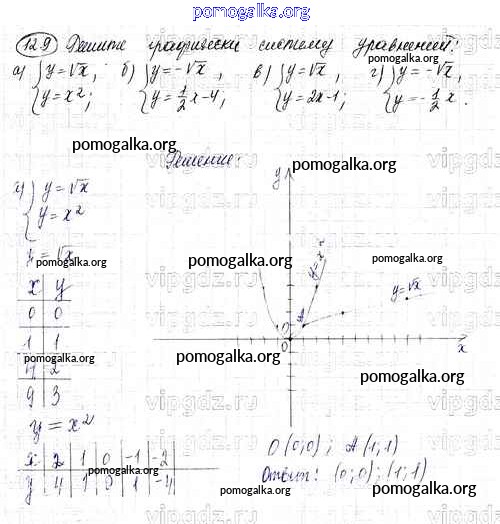 pomogalka.org
12.9 Решите графически систему уравнений:
а) { y = √x, y = x²; б) { y = -√x, y = 1/2 x - 4; в) { y = √x, y = 2x - 1; г) { y = -√x, y = -1/2 x.
pomogalka.org
pomogalka.org
Решение:
vipgdz.ru
а) { y = √x y = x²
y
pomogalka.org
y = √x
pomogalka.org
y = x²
pomogalka.org
x | y
y = √x
0 | 0
A
1 | 1
0
x
pomogalka.org
pomogalka.org
4 | 2
pomogalka.org
9 | 3
vipgdz.ru
y = x²
O(0;0); A(1;1)
x | 2 | 1 | 0 | -1 | -2
Ответ: (0;0); (1;1)
pomogalka.org
y | 4 | 1 | 0 | 1 | -4
pomogalka.org
pomogalka.org